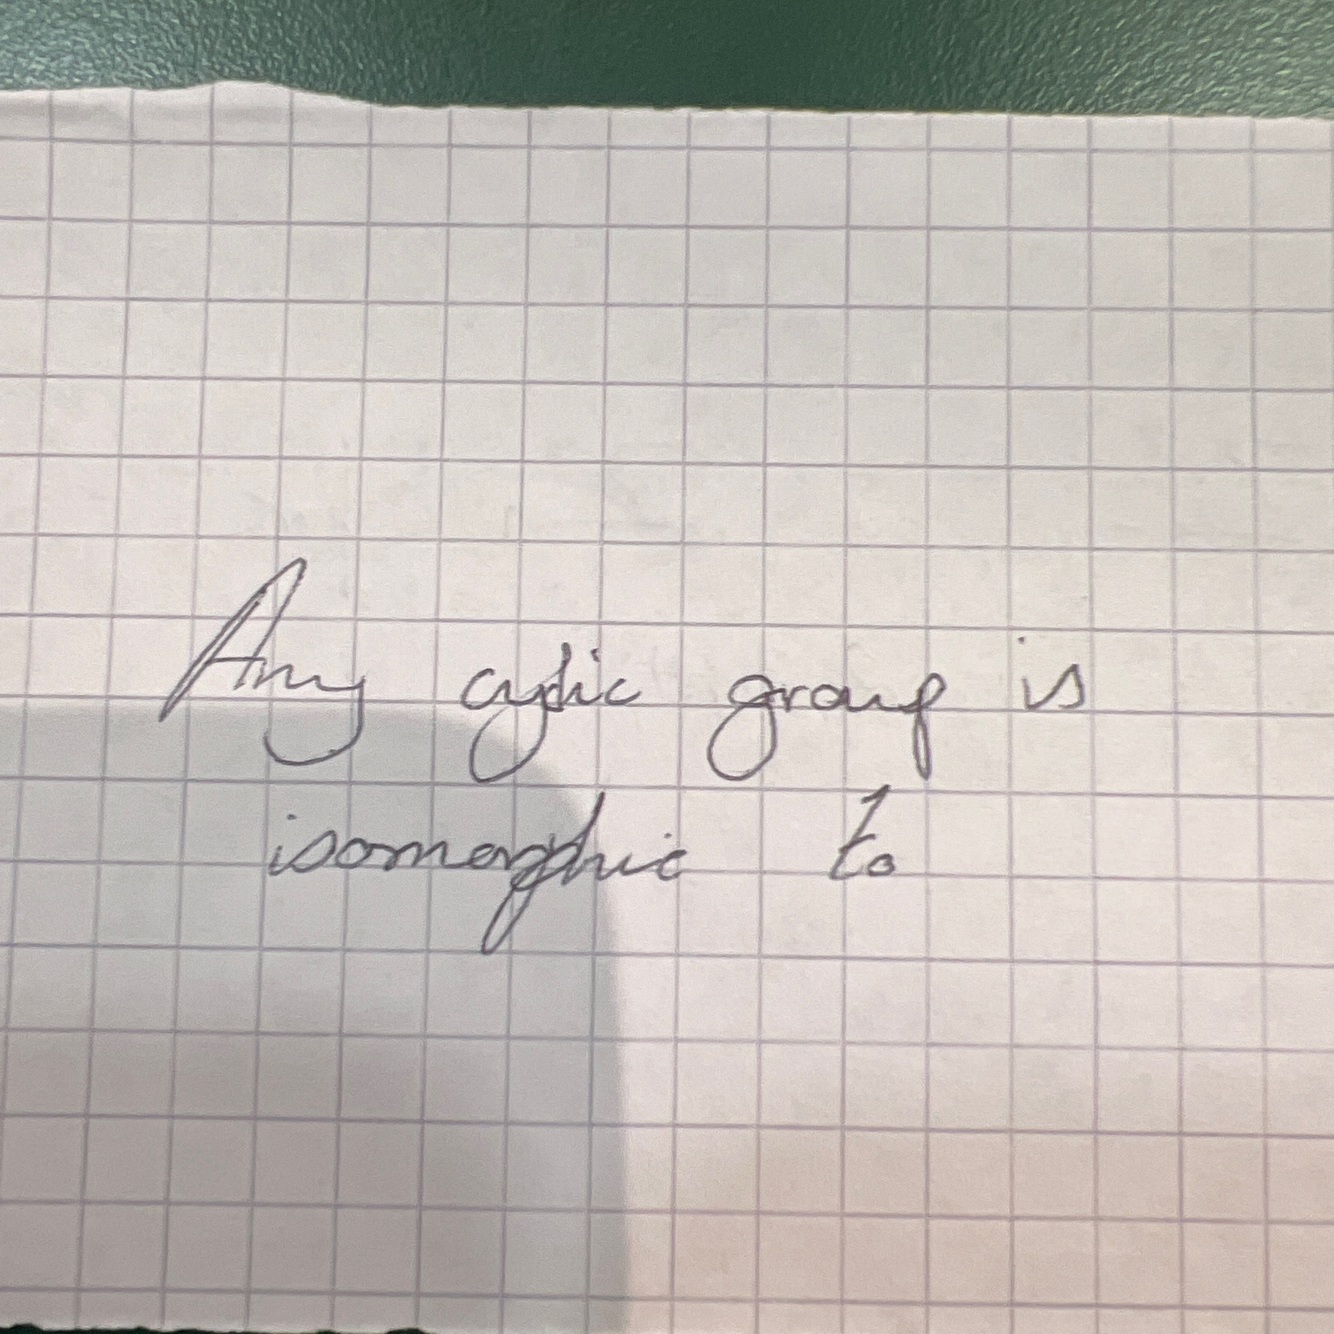 Any cyclic group is
isomorphic to